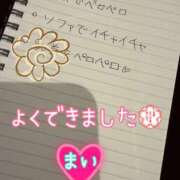 ペロペロ
・ソファでイチャイチャ
ペロペロ
よくできました
まい